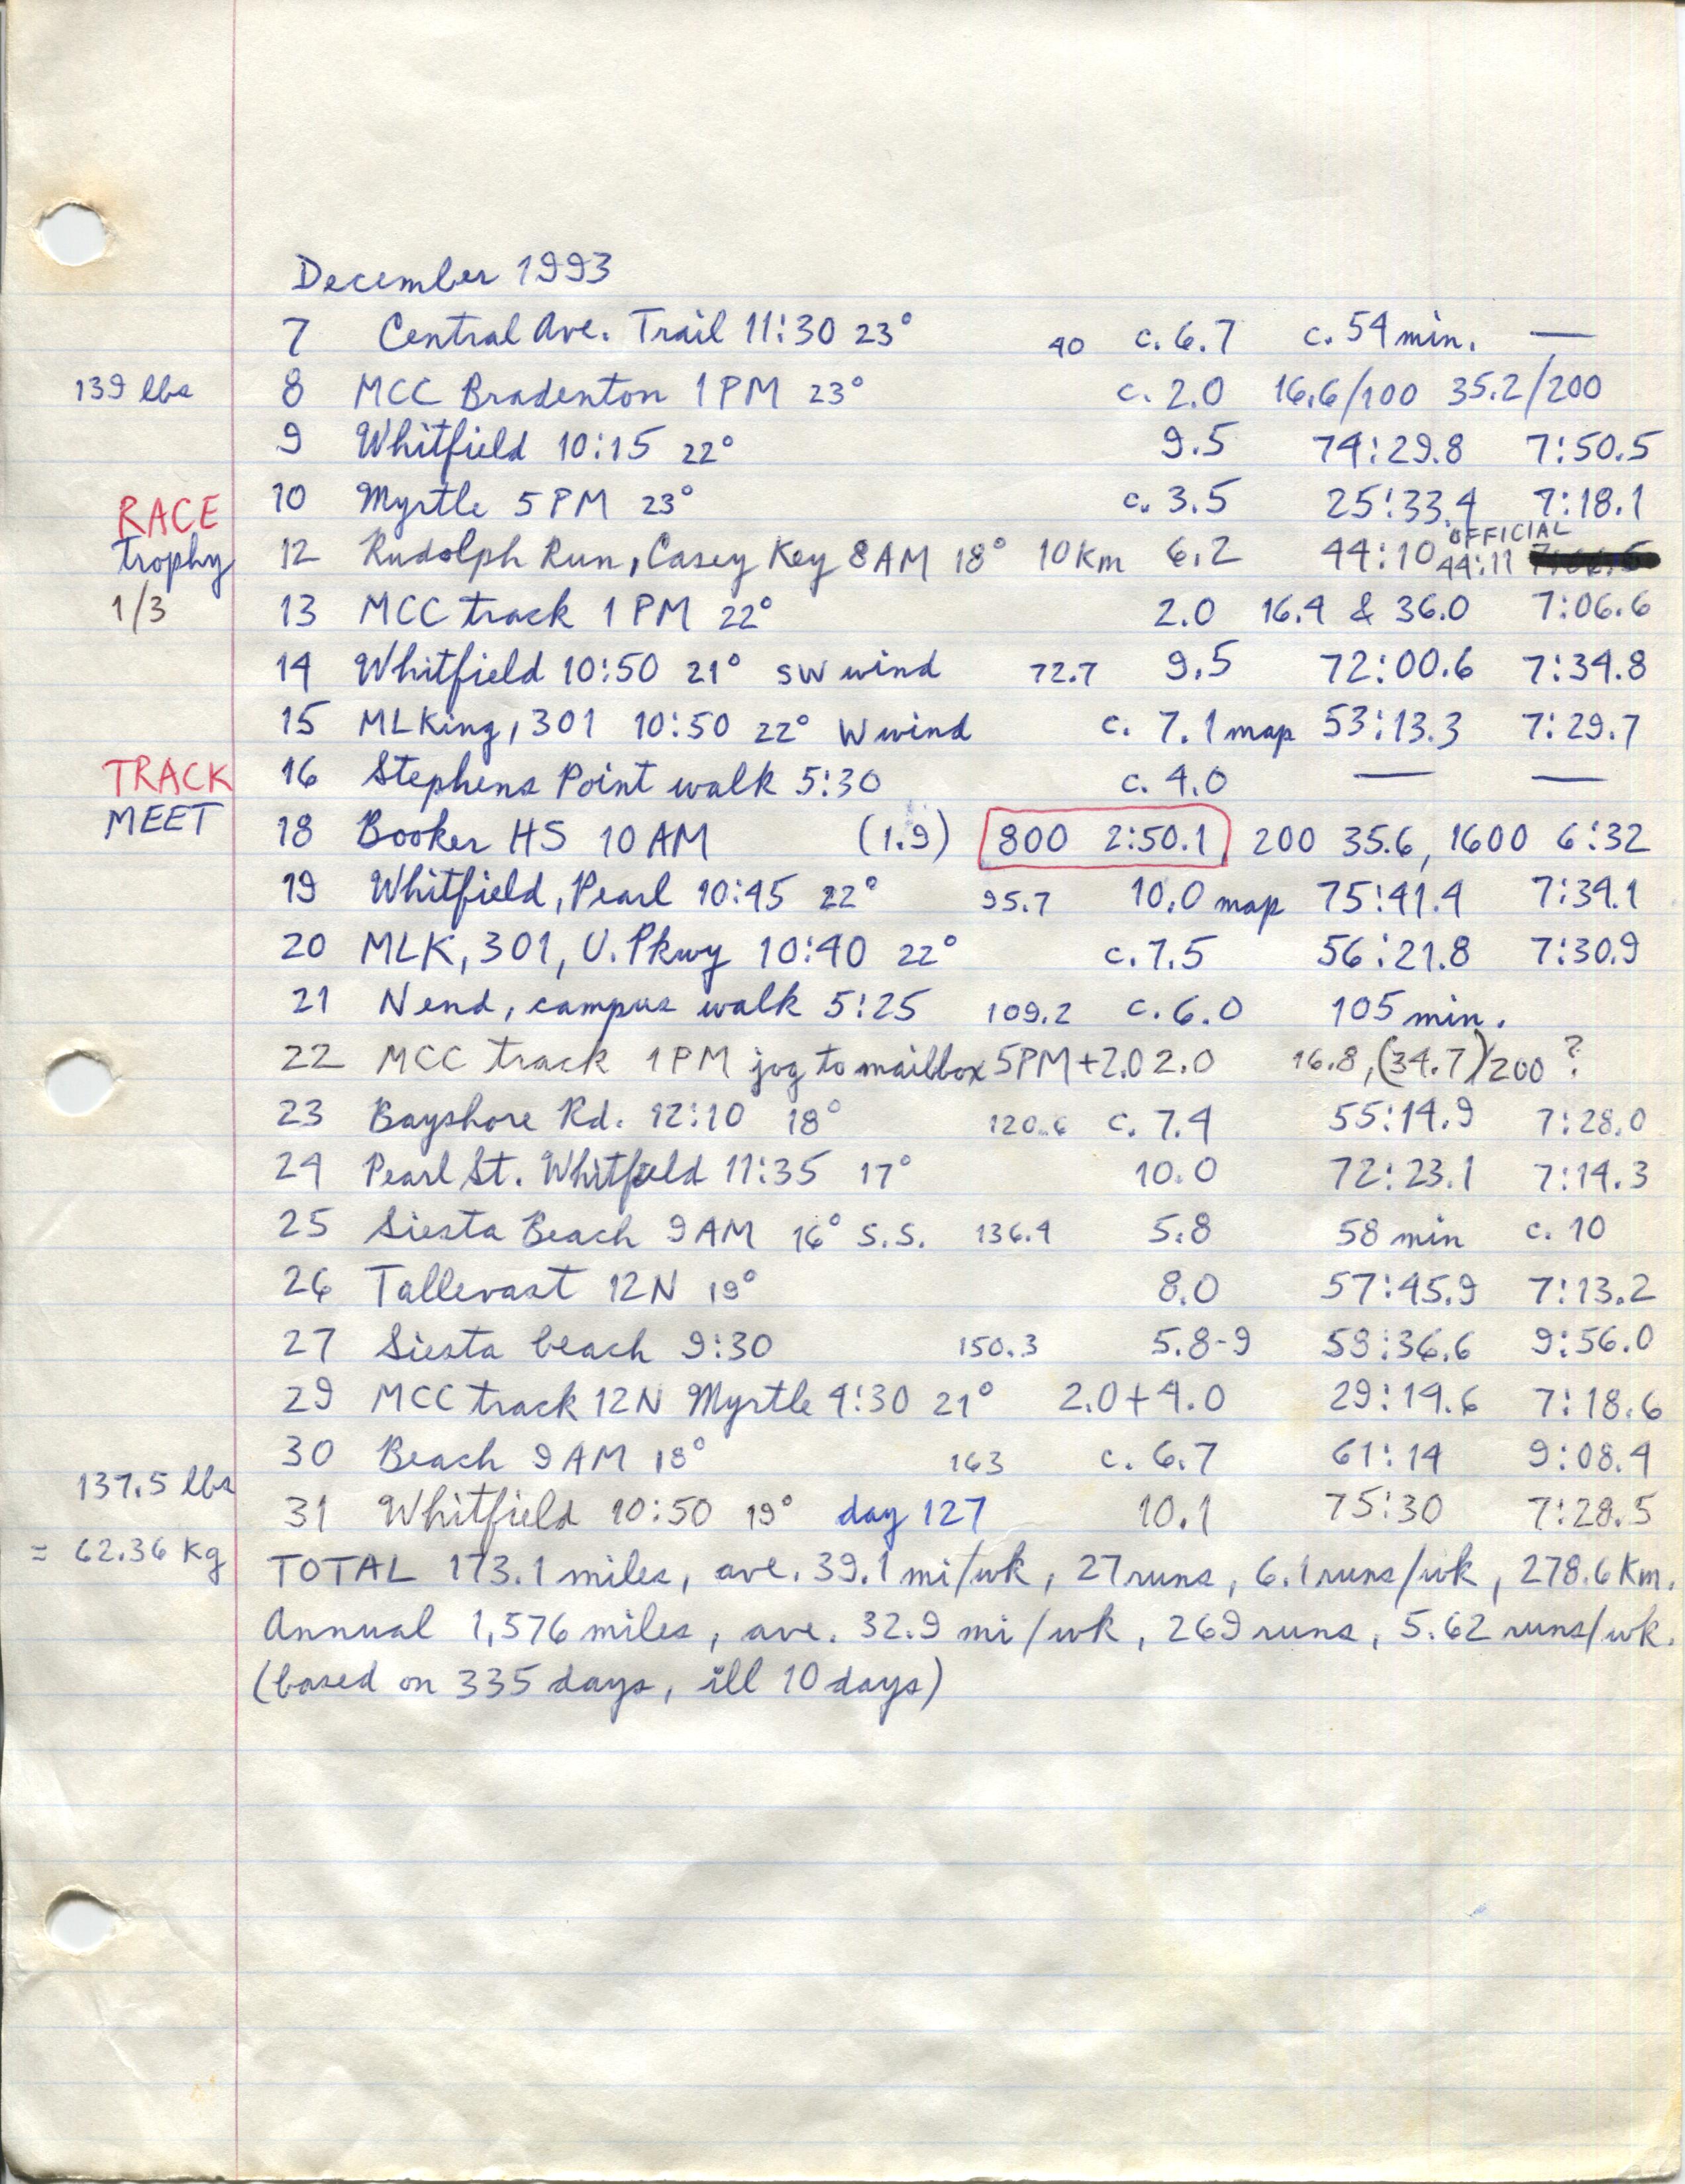 December 1993
7 Central Ave. Trail 11:30 23° 40 c. 6.7 c. 54 min. —
139 lbs 8 MCC Bradenton 1 PM 23° c. 2.0 16.6/100 35.2/200
9 Whitfield 10:15 22° 9.5 74:29.8 7:50.5
RACE 10 Myrtle 5 PM 23° c. 3.5 25:33.4 7:18.1
trophy 12 Rudolph Run, Casey Key 8 AM 18° 10 Km 6.2 44:10 OFFICIAL 44:11
1/3 13 MCC track 1 PM 22° 2.0 16.4 & 36.0 7:06.6
14 Whitfield 10:50 21° SW wind 72.7 9.5 72:00.6 7:34.8
15 MLKing, 301 10:50 22° W wind c. 7.1 map 53:13.3 7:29.7
TRACK 16 Stephens Point walk 5:30 c. 4.0 — —
MEET 18 Booker HS 10 AM (1.9) 800 2:50.1 200 35.6, 1600 6:32
19 Whitfield, Pearl 10:45 22° 95.7 10.0 map 75:41.4 7:34.1
20 MLK, 301, U. Pkwy 10:40 22° c. 7.5 56:21.8 7:30.9
21 N end, campus walk 5:25 109.2 c. 6.0 105 min.
22 MCC track 1 PM jog to mailbox 5 PM + 2.0 2.0 16.8, (34.7)/200 ?
23 Bayshore Rd. 12:10 18° 120.6 c. 7.4 55:14.9 7:28.0
24 Pearl St. Whitfield 11:35 17° 10.0 72:23.1 7:14.3
25 Siesta Beach 9 AM 16° S.S. 136.4 5.8 58 min c. 10
26 Tallevast 12 N 19° 8.0 57:45.9 7:13.2
27 Siesta beach 9:30 150.3 5.8-9 58:36.6 9:56.0
29 MCC track 12 N Myrtle 4:30 21° 2.0 + 4.0 29:14.6 7:18.6
30 Beach 9 AM 18° 163 c. 6.7 61:14 9:08.4
137.5 lbs 31 Whitfield 10:50 19° day 127 10.1 75:30 7:28.5
= 62.36 Kg TOTAL 173.1 miles, ave. 39.1 mi/wk, 27 runs, 6.1 runs/wk, 278.6 Km.
Annual 1,576 miles, ave. 32.9 mi/wk, 269 runs, 5.62 runs/wk.
(based on 335 days, ill 10 days)